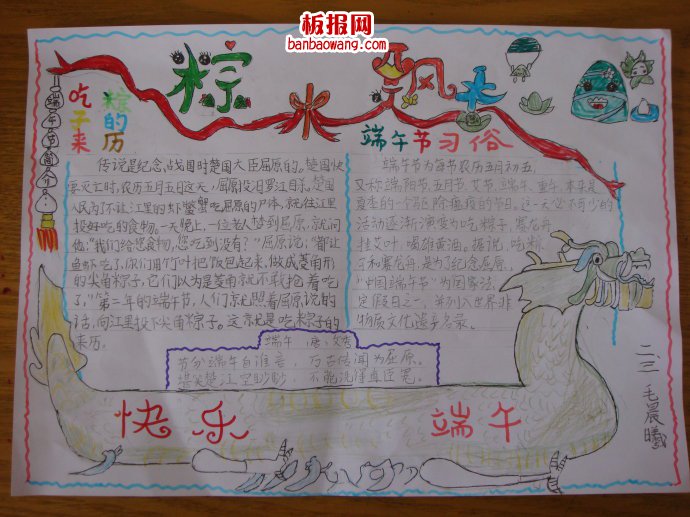 板报网
banbaowang.com
粽米飘香
端午节简介:
吃粽
子的
来历
端午节习俗
传说是纪念战国时楚国大臣屈原的。楚国快
要灭亡时,农历五月五日这天,屈原投汨罗江自杀,楚国
人民为了不让江里的虾蟹吃屈原的尸体,就往江里
投好吃的食物。一天晚上,一位老人梦到屈原,就问
他:“我们给您食物,您吃到没有?”屈原说,“都让
鱼虾吃了,你们用竹叶把饭包起来,做成菱角形
的尖角粽子,它们以为是菱角就不敢抢着吃
了,”第二年的端午节,人们就照着屈原说的
话,向江里投下尖角粽子。这就是吃粽子的
来历。
端午节为每节农历五月初五,
又称端阳节、五月节、艾节、端午、重午,本来是
夏季的一个驱除瘟疫的节日。这一天必不可少的
活动逐渐演变为吃粽子,赛龙舟,
挂艾叶,喝雄黄油。据说,吃粽
子和赛龙舟,是为了纪念屈原,
“中国端午节”为国家法
定假日之一,并列入世界非
物质文化遗产名录。
端午 唐、文秀
节分端午自谁言,万古传闻为屈原。
堪笑楚江空渺渺,不能洗得直臣冤。
快乐端午
二、三
毛晨曦